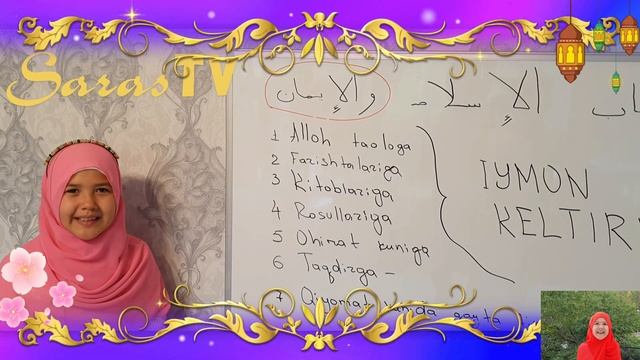 Saras TV
والإيمان
الإسلام
1 Alloh taologa
2 Farishtalariga
3 Kitoblariga
4 Rosullariga
5 Ohirat kuniga
6 Taqdirga –
7 Qiyomat kunida qayta
IYMON
KELTIR